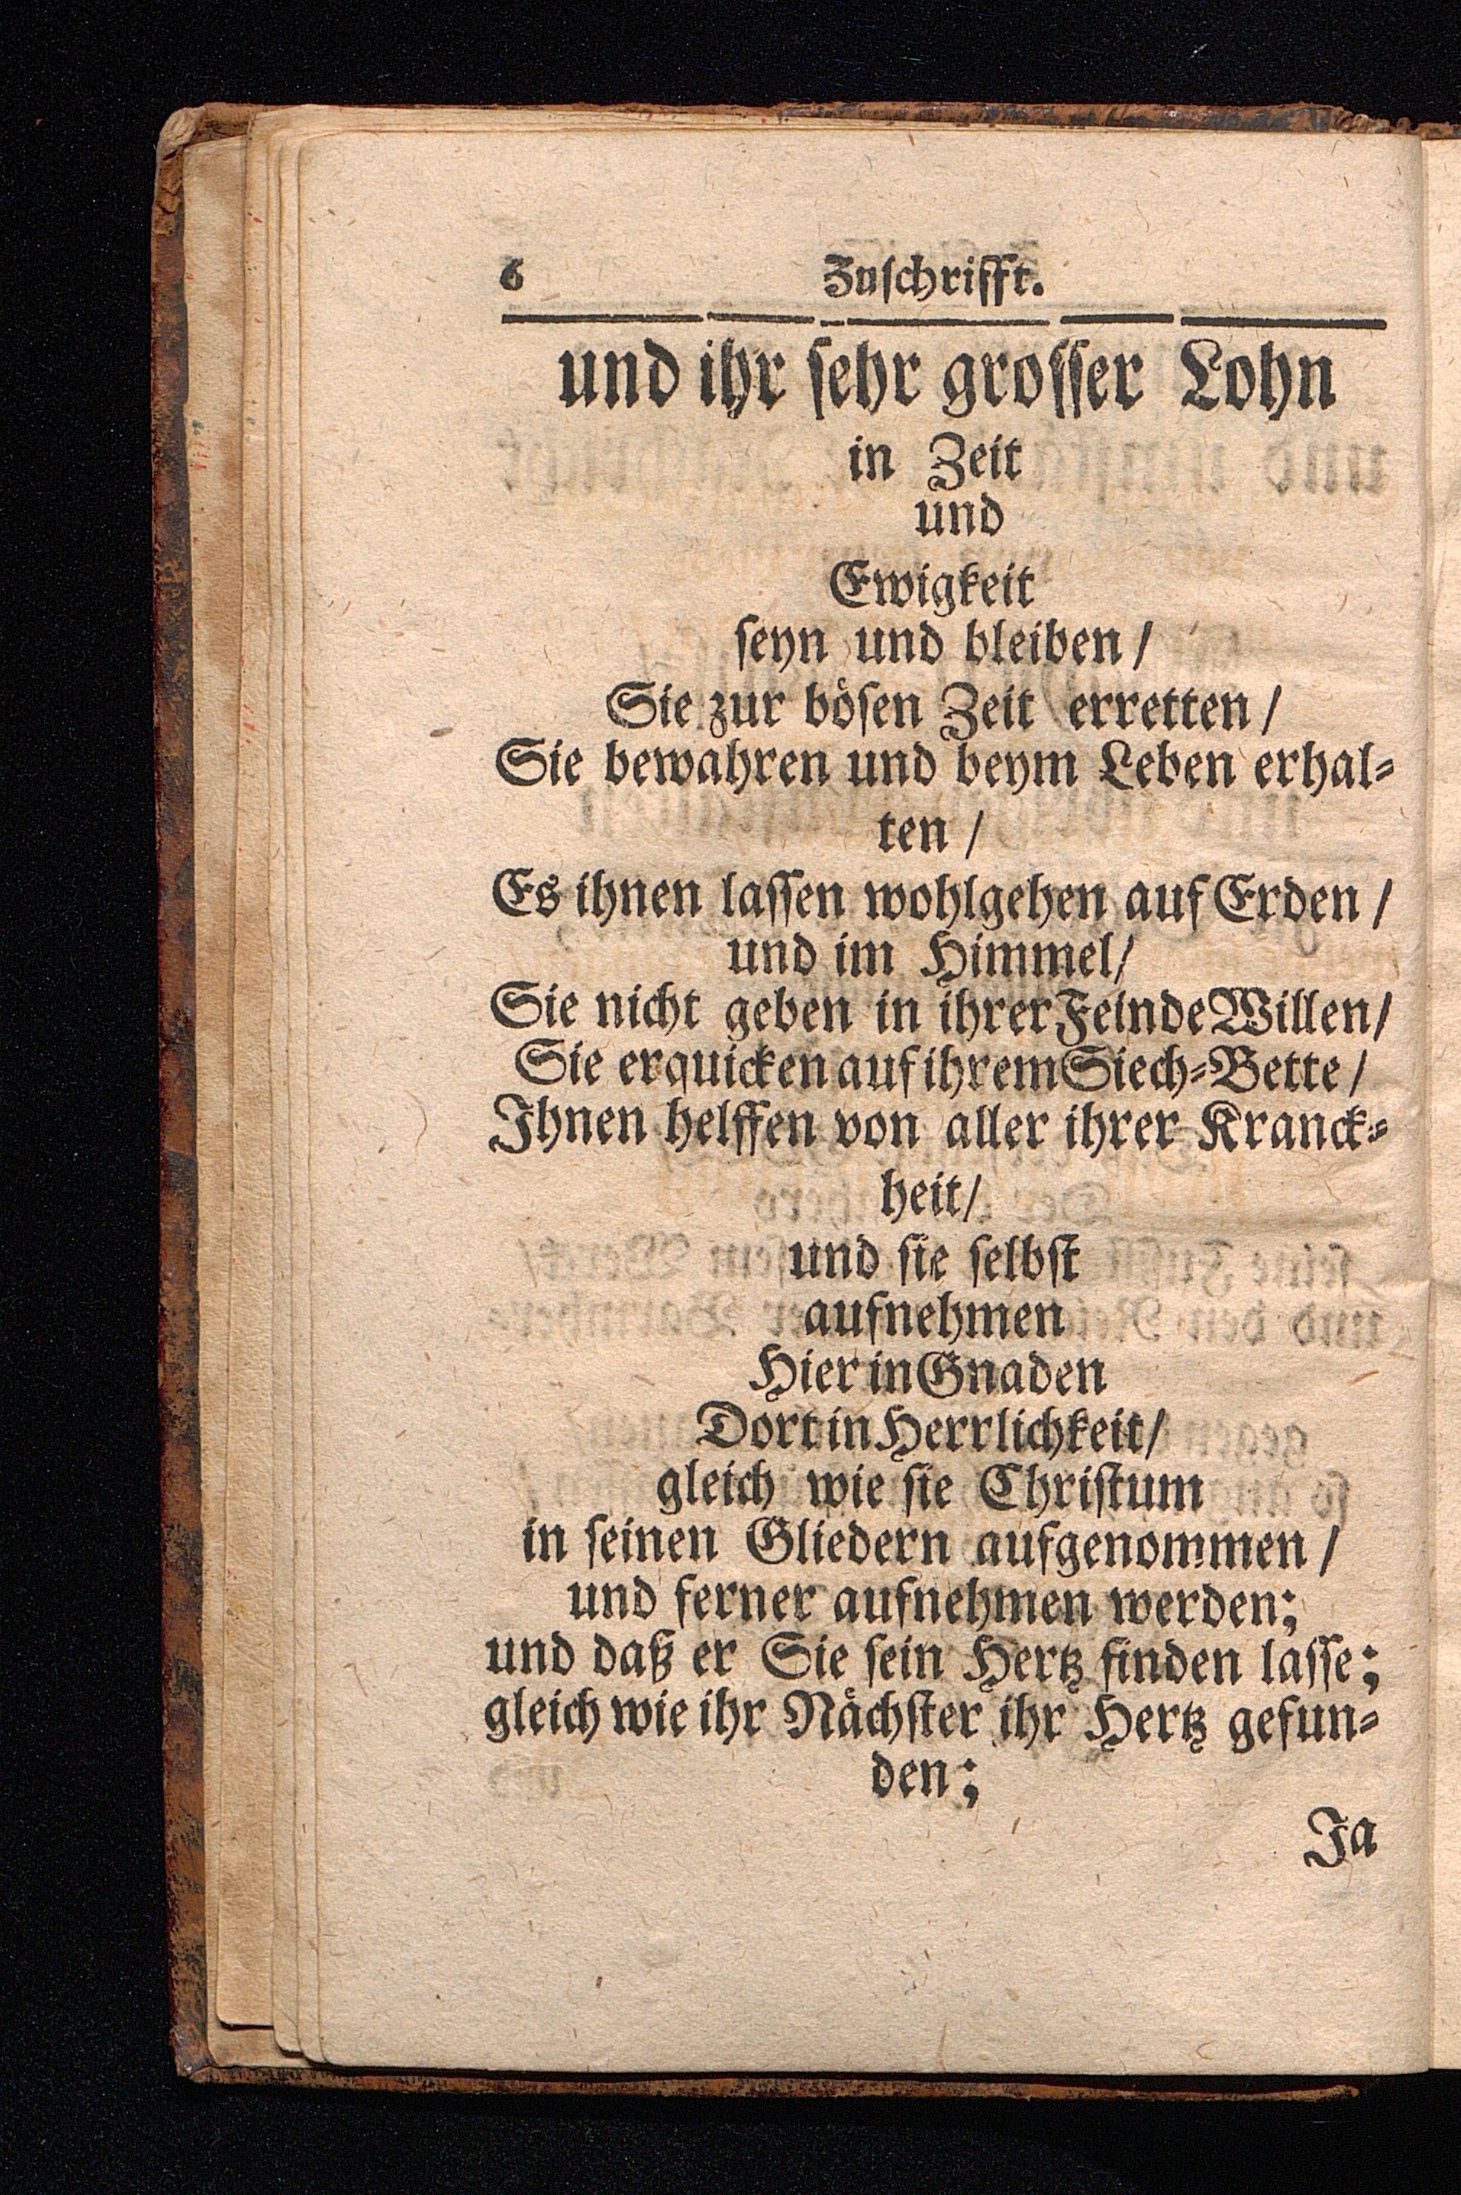 6 Zuschrifft.
und ihr sehr grosser Lohn
in Zeit
und
Ewigkeit
seyn und bleiben /
Sie zur bösen Zeit erretten /
Sie bewahren und beym Leben erhal-
ten /
Es ihnen lassen wohlgehen auf Erden /
und im Himmel /
Sie nicht geben in ihrer Feinde Willen /
Sie erquicken auf ihrem Siech-Bette /
Ihnen helffen von aller ihrer Kranck-
heit /
und sie selbst
aufnehmen
Hier in Gnaden
Dort in Herrlichkeit /
gleich wie sie Christum
in seinen Gliedern aufgenommen /
und ferner aufnehmen werden;
und daß er Sie sein Hertz finden lasse;
gleich wie ihr Nächster ihr Hertz gefun-
den;
Ja